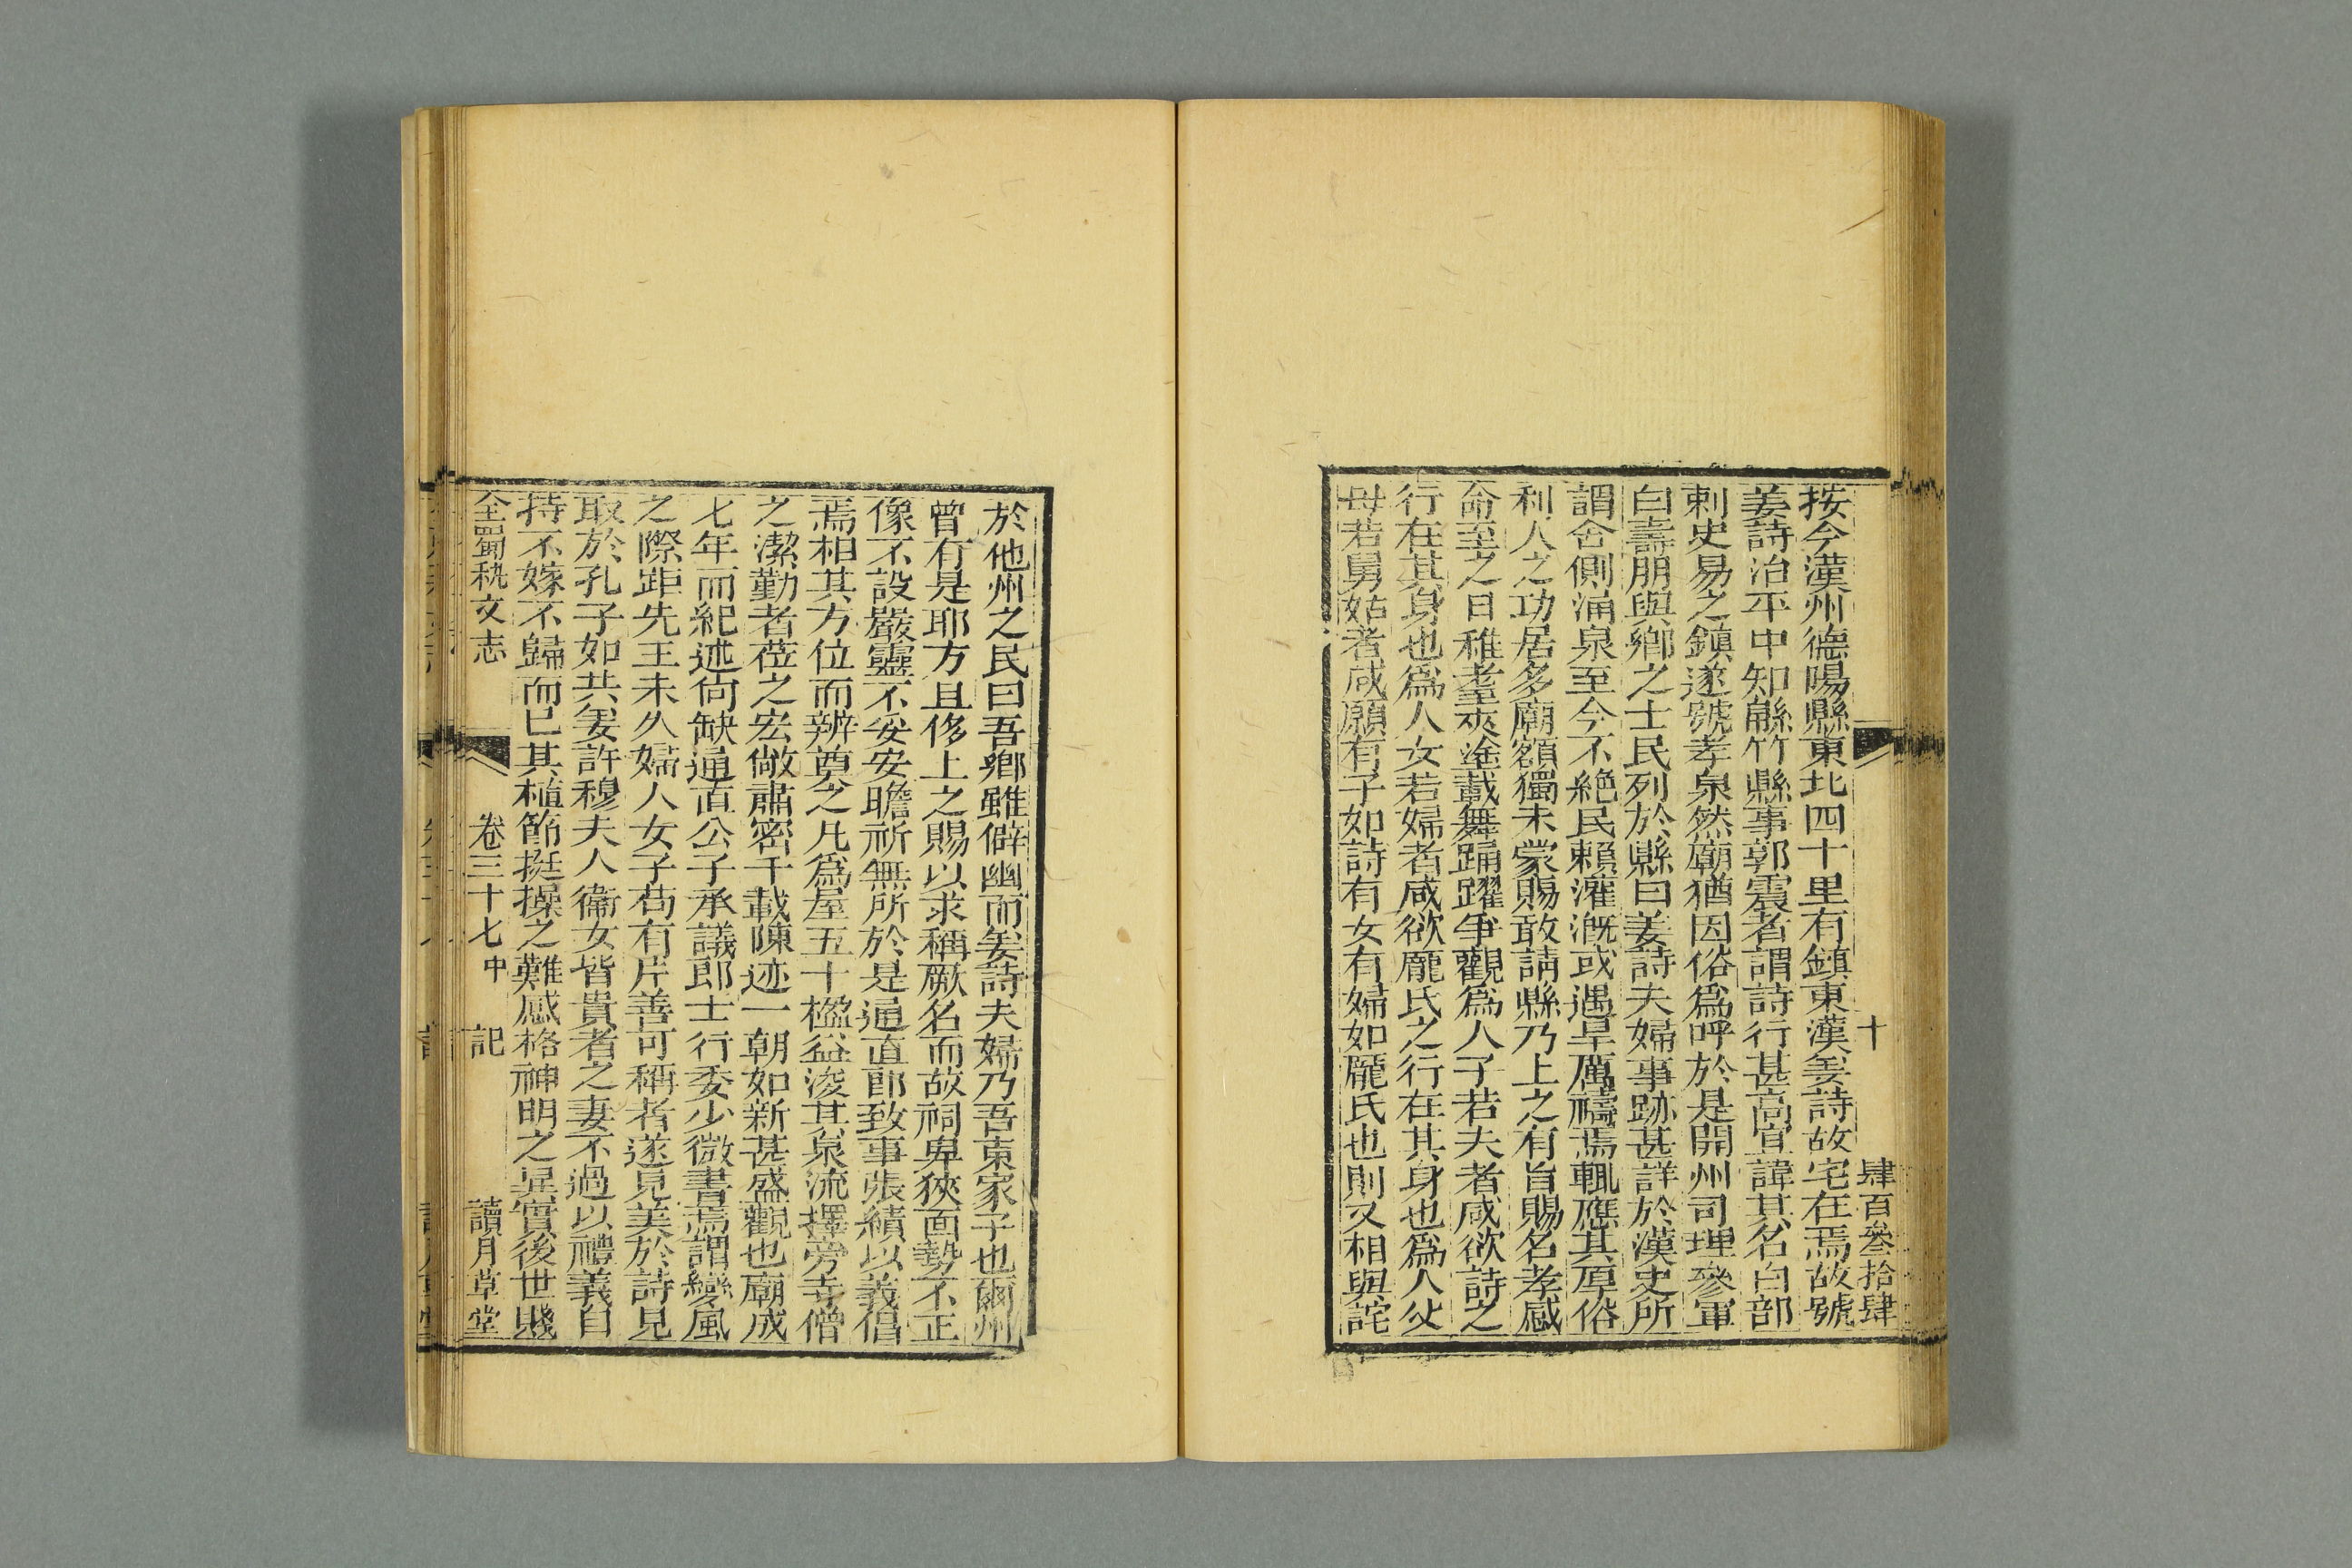 十 肆百叁拾肆
按今漢州德陽縣東北四十里有鎮東漢姜詩故宅在焉故號
姜詩治平中知緜竹縣事郭震者謂詩行甚高宜諱其名白部
刺史易之鎮遂號孝泉然廟猶因俗爲呼於是開州司理參軍
白壽朋與鄉之士民列於縣曰姜詩夫婦事跡甚詳於漢史所
謂舍側涌泉至今不絶民賴灌溉或遇旱厲禱焉輒應其厚俗
利人之功居多廟額獨未蒙賜敢請縣乃上之有旨賜名孝感
命至之日稚耋夾塗載舞踊躍爭觀爲人子若夫者咸欲詩之
行在其身也爲人女若婦者咸欲龎氏之行在其身也爲人父
母若舅姑者咸願有子如詩有女有婦如龎氏也則又相與詫
於他州之民曰吾鄉雖僻幽而姜詩夫婦乃吾東家子也爾州
曾有是耶方且侈上之賜以求稱厥名而故祠卑狹面埶不正
像不設嚴靈不妥安瞻祈無所於是通直郎致事張績以義倡
焉相其方位而辨奠之凡爲屋五十楹益浚其泉流擇旁寺僧
之潔勤者莅之宏敞肅密千載陳迹一朝如新甚盛觀也廟成
七年而紀述尙缺通直公子承議郎士行委少微書焉謂變風
之際距先王未久婦人女子苟有片善可稱者遂見美於詩見
取於孔子如共姜許穆夫人衞女皆貴者之妻不過以禮義自
持不嫁不歸而已其植節挺操之難感格神明之異實後世賤
全蜀秇文志 卷三十七中 記 讀月草堂